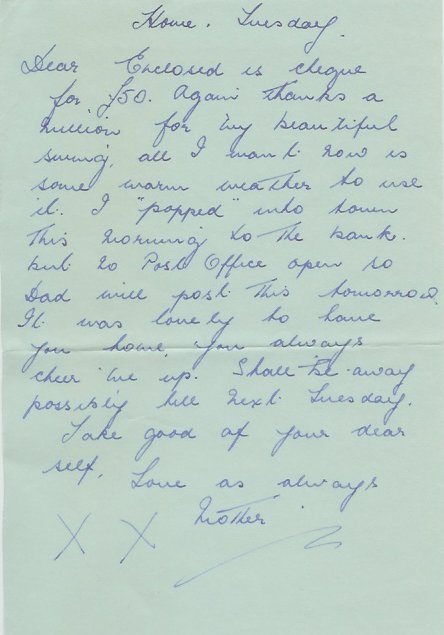 Home. Tuesday.
Dear Enclosed is cheque
for £50. Again thanks a
million for my beautiful
swing, all I want now is
some warm weather to use
it. I "popped" into town
this morning to the bank.
but no Post Office open so
Dad will post this tomorrow.
It was lovely to have
you home, you always
cheer me up. Shall be away
possibly till next Tuesday.
Take good of your dear
self. Love as always
Mother
X X